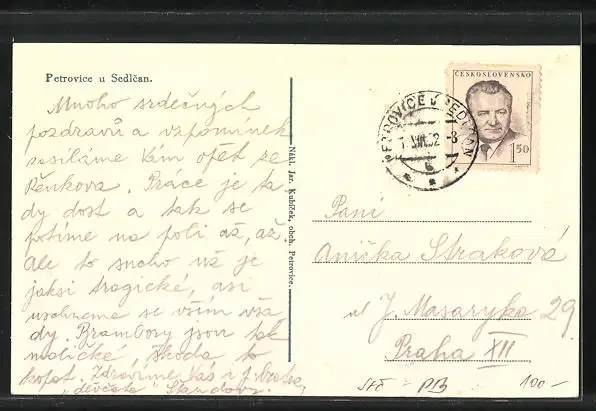 Petrovice u Sedlčan.
Mnoho srdečných
pozdravů a vzpomínek
zasíláme Vám opět ze
Řenkova. Práce je ta-
dy dost a tak se
potíme na poli až, až.
Ale to sucho už je
jaksi tragické, asi
uschneme se vším vša-
dy. Brambory jsou tak
maličké, škoda to
kopat. Zdravíme Vás
"děvčata"
Nákl. Jar. Kubíček, obch. Petrovice.
ČESKOSLOVENSKO
1.50
PETROVICE U SEDLČAN
Paní
Anička Straková
ul J. Masaryka 29.
Praha XII
100-